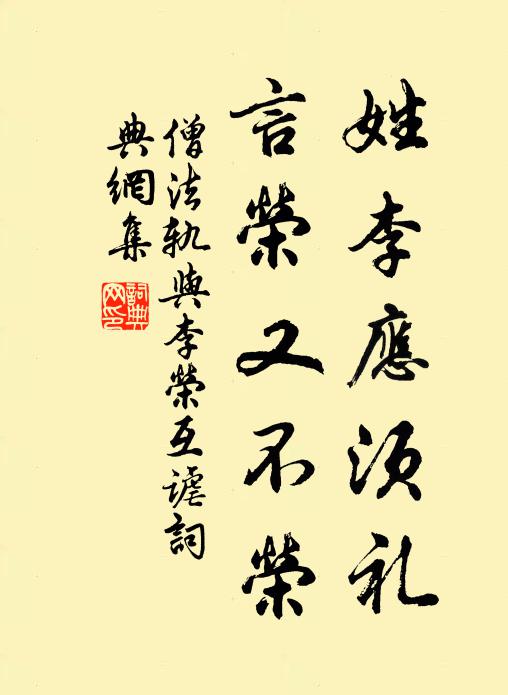 姓李應須礼
言榮又不榮
僧法軌與李榮互謔詞
典網集
詞典網印